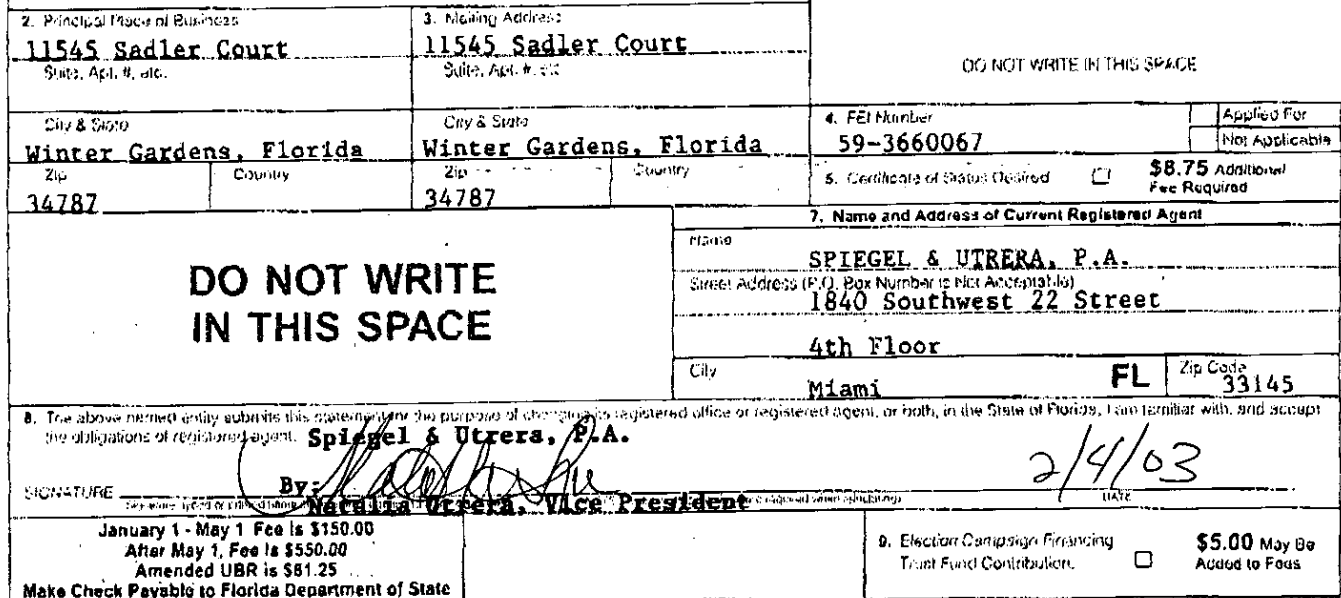 2. Principal Place of Business
11545 Sadler Court
Suite, Apt. #, etc.
City & State
Winter Gardens, Florida
Zip Country
34787
3. Mailing Address
11545 Sadler Court
Suite, Apt. #, etc
City & State
Winter Gardens, Florida
Zip Country
34787
DO NOT WRITE IN THIS SPACE
4. FEI Number
59-3660067
Applied For
Not Applicable
5. Certificate of Status Desired
$8.75 Additional
Fee Required
DO NOT WRITE
IN THIS SPACE
7. Name and Address of Current Registered Agent
Name
SPIEGEL & UTRERA, P.A.
Street Address (P.O. Box Number is Not Acceptable)
1840 Southwest 22 Street
4th Floor
City
Miami FL
Zip Code
33145
8. The above named entity submits this statement for the purpose of changing its registered office or registered agent, or both, in the State of Florida. I am familiar with, and accept
the obligations of registered agent.
Spiegel & Utrera, P.A.
By:
SIGNATURE
Natalia Utrera, Vice President
2/4/03
DATE
January 1 - May 1 Fee is $150.00
After May 1, Fee is $550.00
Amended UBR is $61.25
Make Check Payable to Florida Department of State
9. Election Campaign Financing
Trust Fund Contribution.
$5.00 May Be
Added to Fees